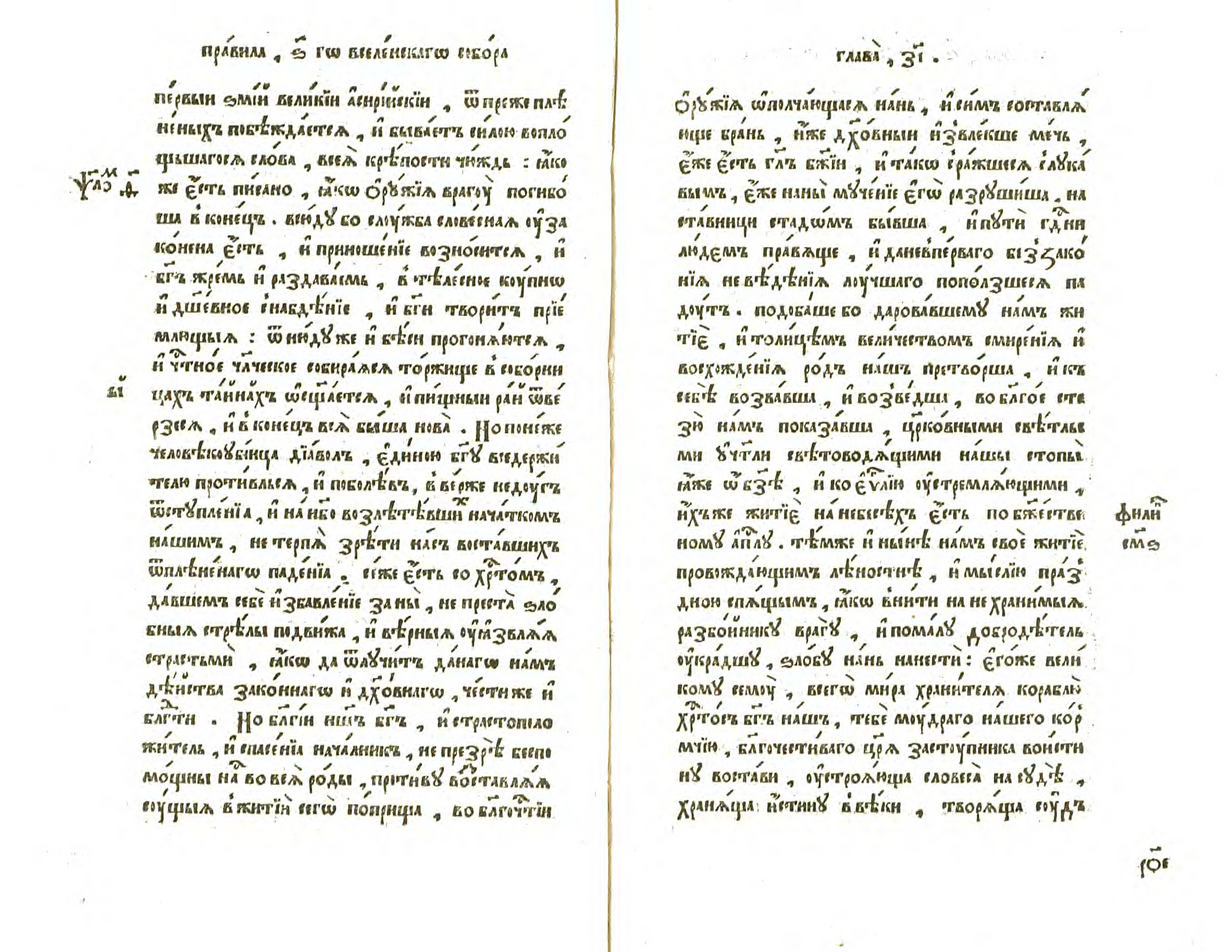 пра́вила , ѕ҃ гѡ вселе́нскагѡ собо́ра
пе́рвыи ѕмі́й вели́кїи а҆сирі́йскїи , ѿ пре́же плѣ
не́ныхъ побѣжда́ется , и҆ быва́етъ си́лою вопло́
щьшагося сло́ва , всеѧ̀ крѣ́пости чю́ждь : ꙗ҆́ко
же є҆́сть пи́сано , ꙗ҆́кѡ ѻ҆ру́жїѧ врагоу̀ поги́бо
ша в̾ коне́цъ . всю́ду бо слоу́жба слове́снаѧ оу҆за
ко́нена є҆́сть , и҆ приноше́нїе возно́сится , и҆
бг҃ъ жре́мь и҆ раздава́емь , в̾ тѣле́сное коу́пнѡ
и҆ дш҃е́вное снабдѣ́нїе , и҆ бг҃и твори́тъ прїе́
млющыѧ : ѿню́ду же и҆ бѣ́си прогонѧ́ютсѧ ,
и҆ чⷭ҇тно́е чл҃ческое собира́ѧсѧ то́ржище в̾ собо́рни
цахъ та́йнахъ ѡ҆сщ҃а́етсѧ , и҆ пи́щныи ра́й ѿве́
рзесѧ , и҆ в̾ коне́цъ всѧ̀ бы́ша но́ва . Но поне́же
человѣкоубі́йца дїа́волъ , є҆ди́ною бг҃у вседержи́
телю проти́вльсѧ , и҆ поболѣ́въ , в̾ве́рже неду́гъ
ѿступле́нїѧ , и҆ на́ нб҃о возлетѣ́вшиⷯ нача́ткомъ
на́шимъ , не терпѧ̀ зрѣ́ти на́съ воста́вшихъ
ѿ плѣне́нагѡ паде́нїѧ . се́ же є҆́сть со хрⷭ҇то́мъ ,
да́вшемъ себѐ и҆збавле́нїе за ны̀ , не преста̀ ѕло́
бныѧ стрѣ́лы подви́жа , и҆ вѣ́рныѧ оу҆ꙗзвлѧ́ѧ
страстьмѝ , ꙗ҆́кѡ да ѿлучи́тъ да́нагѡ на́мъ
дѣ́йства зако́ннагѡ и҆ дх҃о́внагѡ , че́сти же и҆
блгⷣти . Но бл҃гі́и нш҃ъ бг҃ъ , и҆ страстополо
жи́тель , и҆ спасе́нїѧ нача́лникъ , не презрѣ̀ беспо́
мощны на́ⷭ во всѧ̀ ро́ды , проти́ву воⷥставлѧ́ѧ
соу́щыѧ в̾ житїѝ сегѡ̀ по́прища , во бл҃гочⷭ҇тїи
ѱⷧ҇о́ⷨ ѳ҃
в҃і
глава̀ , з҃і .
ѻ҆ру́жїѧ ѡ҆полча́ющаѧсѧ на́нь , и҆ си́мъ составлѧ́
юще бра́нь , и҆́же дх҃о́вныи и҆звле́кше ме́чь ,
є҆́же є҆́сть гл҃ъ бж҃їи , и҆ та́кѡ сра́жшесѧ с лука́
вымъ , є҆́же на ны̀ муче́нїе є҆гѡ̀ разруши́ша . на
ста́вницы ста́дѡмъ бы́вша , и҆ пути̑ гдⷭ҇ни
лю́демъ пра́вѧще , и҆ да не в̾ пе́рваго без̾зако́
нїѧ не вѣ́дѣнїѧ лоу́чшаго попо́лзшесѧ па
ду́тъ . подоба́ше бо дарова́вшему на́мъ жи
тїѐ , и҆ толи́цѣмъ вели́чествомъ смире́нїѧ и҆
восхожде́нїѧ ро́дъ на́шъ претво́рша , и҆ къ
себѣ̀ возва́вша , и҆ возве́дша , во бл҃го́е сте
зю̀ на́мъ показа́вша , цр҃ко́вными свѣ́тлы
ми оу҆чт҃ли свѣтоводѧ́щими на́шы стопы̀
ꙗ҆́же ѡ҆ бз҃ѣ , и҆ ко є҆ѵⷢ҇лїю оу҆стремлѧ́ющими ,
и҆́хъже житїѐ на небесѣ́хъ є҆́сть по бж҃е́стве
ному а҆пⷭ҇лу . тѣ́мже и҆ ны́нѣ на́мъ своѐ житїѐ
провожда́ющимъ лѣ́ностнѣ , и҆ мы́слїю пра́з̾
дною спѧ́щымъ , ꙗ҆́кѡ вни́ти на не храни́мыѧ
разбо́йнику врагу̀ , и҆ пома́лу добродѣ́тель
оу҆кра́дшу , ѕло́бу на́нь нанестѝ : є҆го́же вели́
кому семоу̀ , всегѡ̀ ми́ра храни́телѧ кораблю̀
хрⷭ҇то́съ бг҃ъ на́шъ , тебѐ моу́драго на́шего ко́р
мчїю , бл҃гочести́ваго цр҃ѧ̀ застоу́пника вои́сти
ну воста́ви , оу҆строѧ́юща словеса̀ на судѣ̀ ,
хранѧ́ща и҆́стину в̾ вѣ́ки , творѧ́ща соу́дъ
филиⷫ҇
сⷨѕ
рѻ҃е